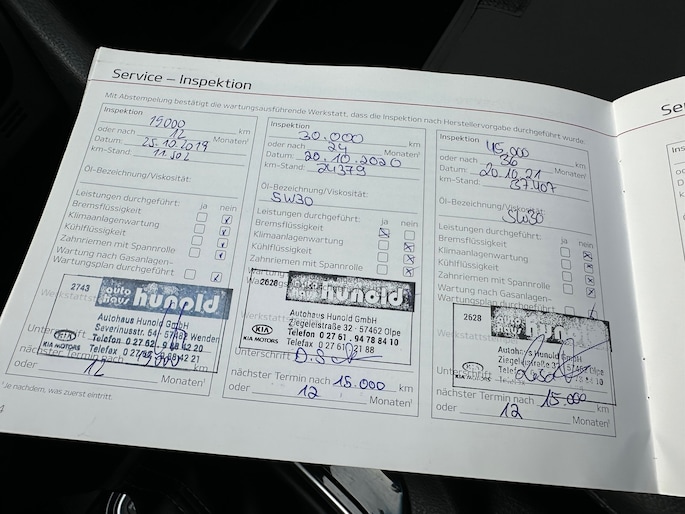 Service – Inspektion
Mit Abstempelung bestätigt die wartungsausführende Werkstatt, dass die Inspektion nach Herstellervorgabe durchgeführt wurde.
Inspektion
15000 km
oder nach 12 Monaten¹
Datum: 25.10.2019
km-Stand: 11.502
Öl-Bezeichnung/Viskosität:
Leistungen durchgeführt: ja nein
Bremsflüssigkeit x
Klimaanlagenwartung x
Kühlflüssigkeit x
Zahnriemen mit Spannrolle x
Wartung nach Gasanlagen-
Wartungsplan durchgeführt x
2743 auto haus hunold
Autohaus Hunold GmbH
Severinusstr. 64 · 57482 Wenden
Telefon 0 27 62
Telefax
KIA
KIA MOTORS
nächster Termin nach km
oder 12 Monaten¹
¹ Je nachdem, was zuerst eintritt.
Inspektion
30.000 km
oder nach 24 Monaten¹
Datum: 20.10.2020
km-Stand: 24379
Öl-Bezeichnung/Viskosität:
5W30
Leistungen durchgeführt: ja nein
Bremsflüssigkeit x
Klimaanlagenwartung x
Kühlflüssigkeit x
Zahnriemen mit Spannrolle x
2628 hunold
Autohaus Hunold GmbH
Ziegeleistraße 32 · 57462 Olpe
Telefon 0 27 61 . 94 78 84 10
Telefax 0 27 61
KIA
KIA MOTORS
Unterschrift
nächster Termin nach 15.000 km
oder 12 Monaten¹
Inspektion
45.000 km
oder nach 36 Monaten¹
Datum: 20.10.21
km-Stand: 37.407
Öl-Bezeichnung/Viskosität:
5W30
Leistungen durchgeführt: ja nein
Bremsflüssigkeit
Klimaanlagenwartung x
Kühlflüssigkeit x
Zahnriemen mit Spannrolle x
Wartung nach Gasanlagen-
Wartungsplan durchgeführt
2628
Autohaus Hunold GmbH
Ziegeleistraße 32
KIA
KIA MOTORS
Unterschrift
nächster Termin nach 15.000 km
oder 12 Monaten¹